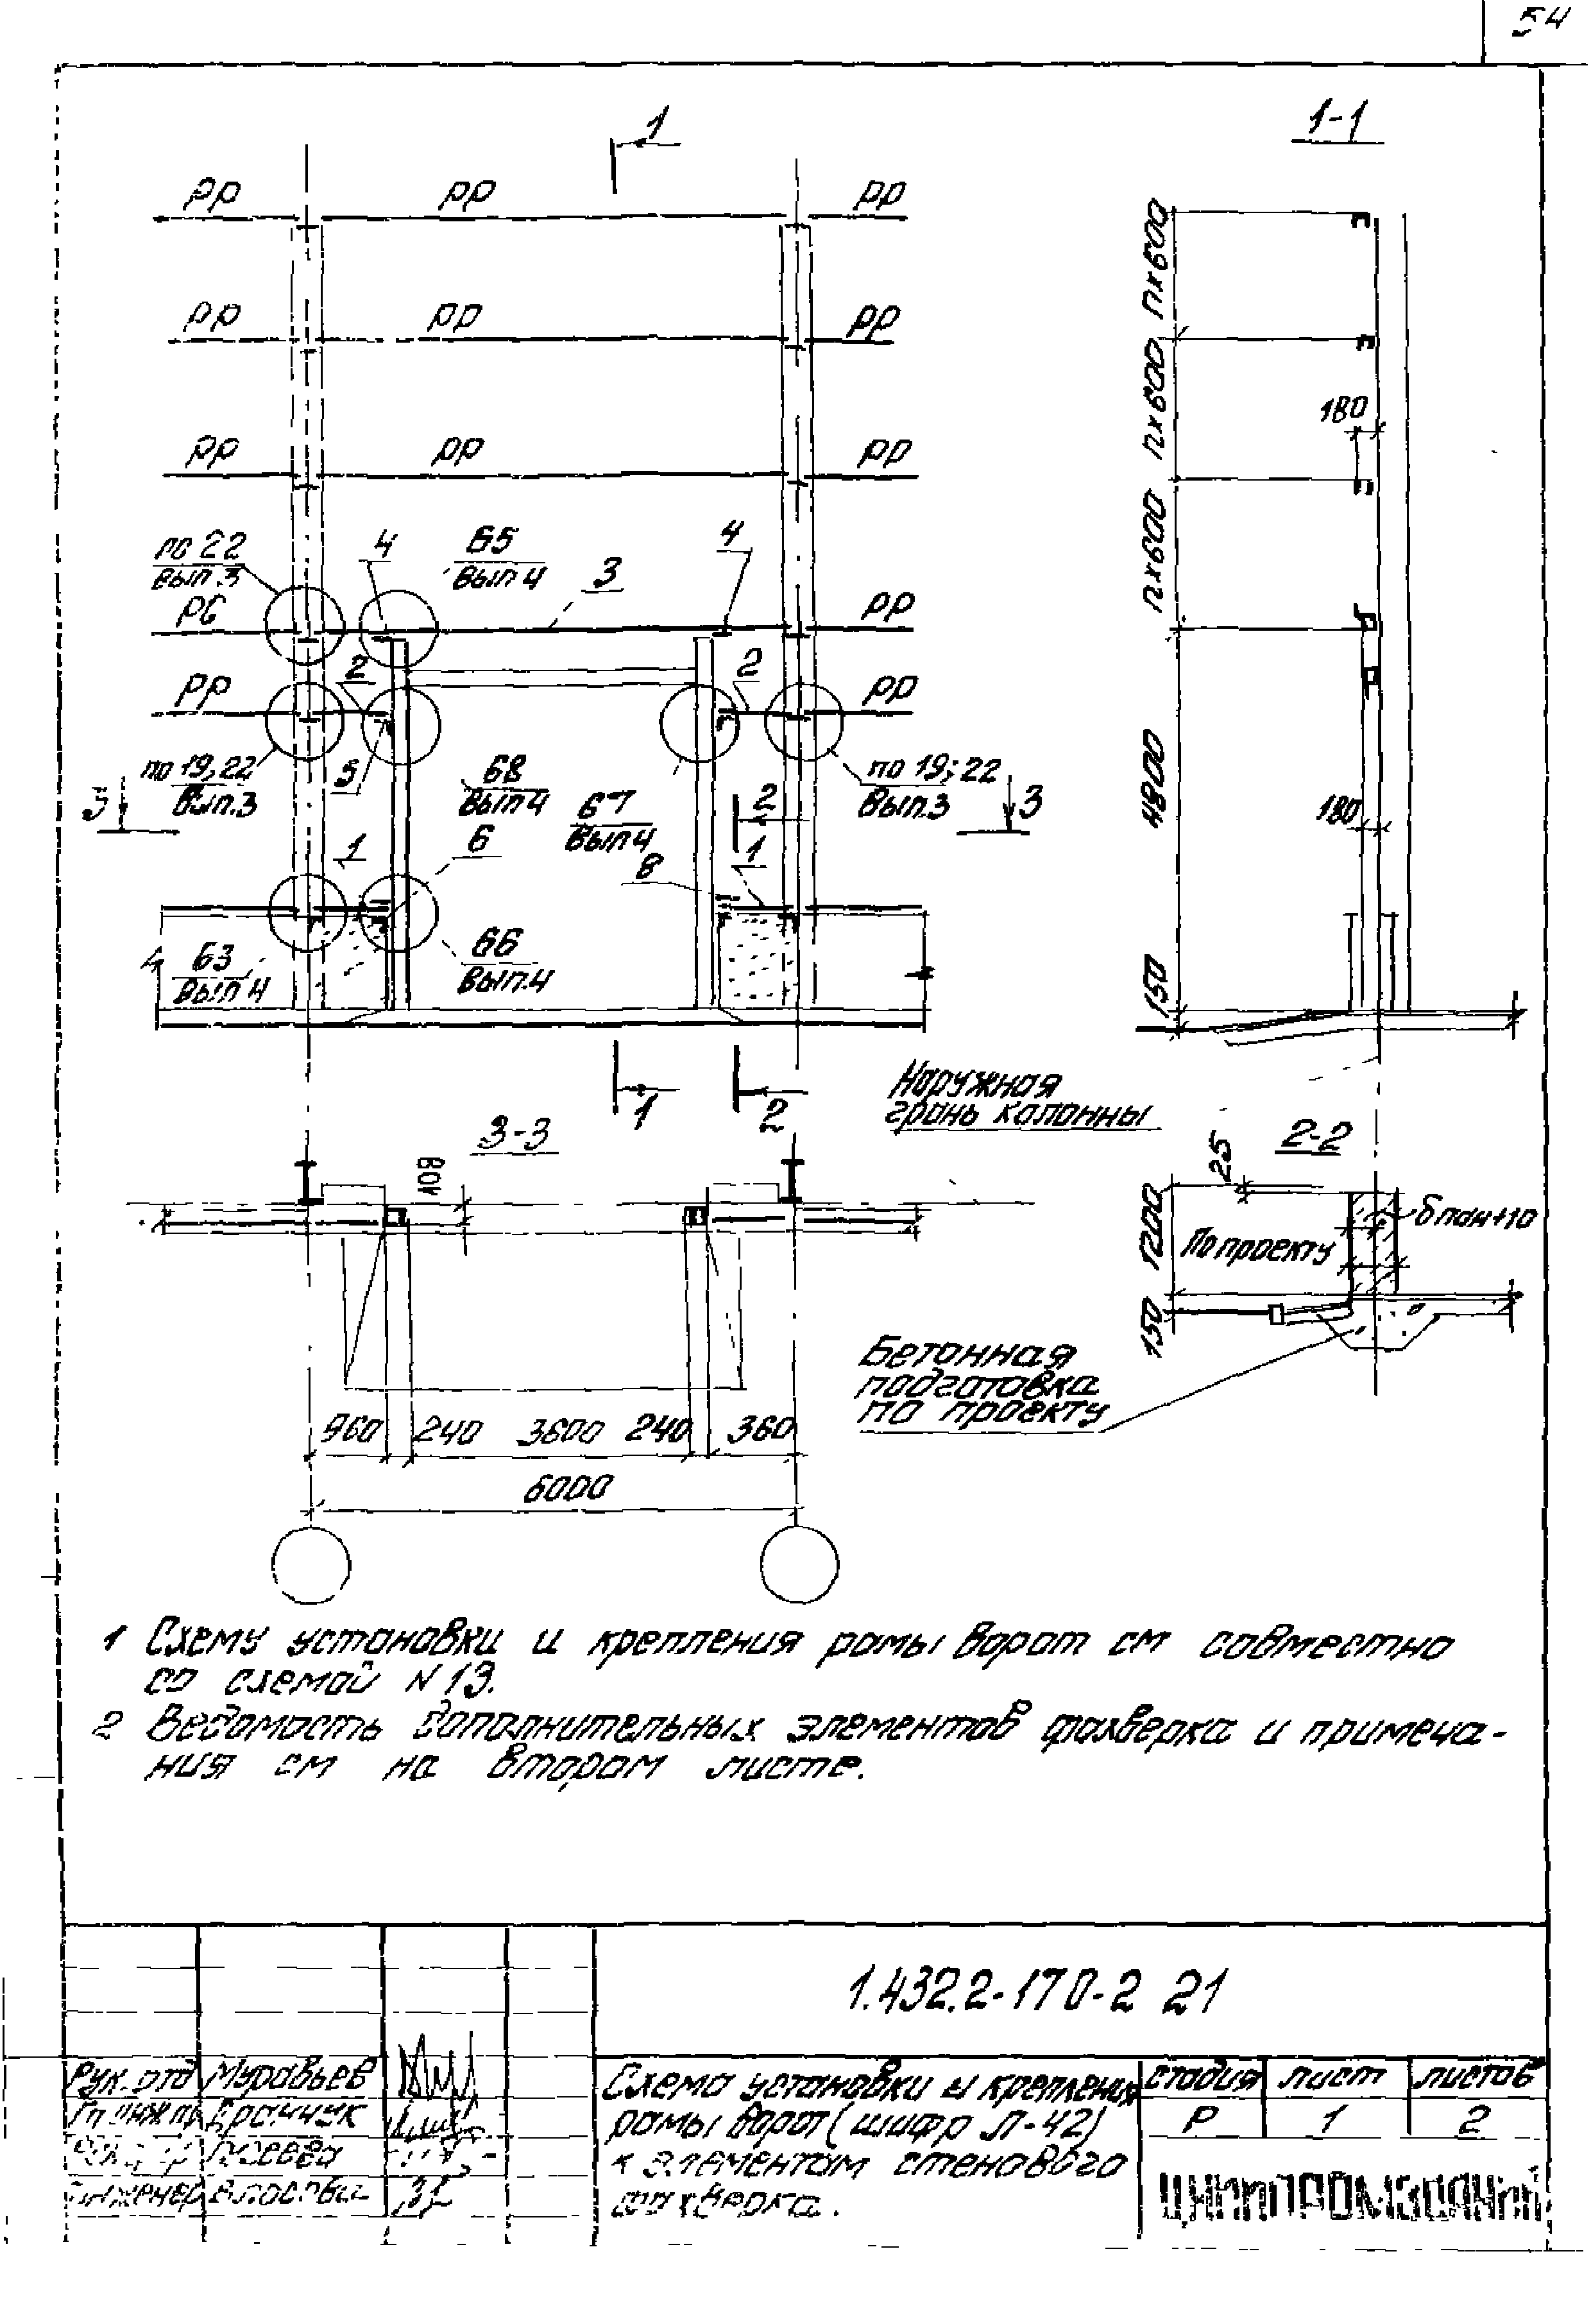 54
1
1-1
РР РР РР
РР РР РР
РР РР РР
пх600
пх600
пх600
180
по 22
вып.3
4
65
вып 4
3
4
РР
РР
2
2
РР
по 19; 22
вып.3
5
68
вып 4
67
вып 4
по 19; 22
вып.3
3
3
2
6
1
1
8
4800
180
150
63
вып 4
66
вып.4
1
2
Наружная
грань колонны
3-3
2-2
25
1200
150
δпан+10
По проекту
Бетонная
подготовка
по проекту
960 240 3600 240 960
6000
1 Схему установки и крепления рамы ворот см совместно
со схемой N 13.
2 Ведомость дополнительных элементов фахверка и примеча-
ния см на втором листе.
1.432.2-17 0-2 21
Рук. отд Муравьев
Гл инж пр
Инженер
Схема установки и крепления
рамы ворот (шифр Л-42)
к элементам стенового
фахверка.
стадия лист листов
Р 1 2
ЦНИИПРОМЗДАНИЙ